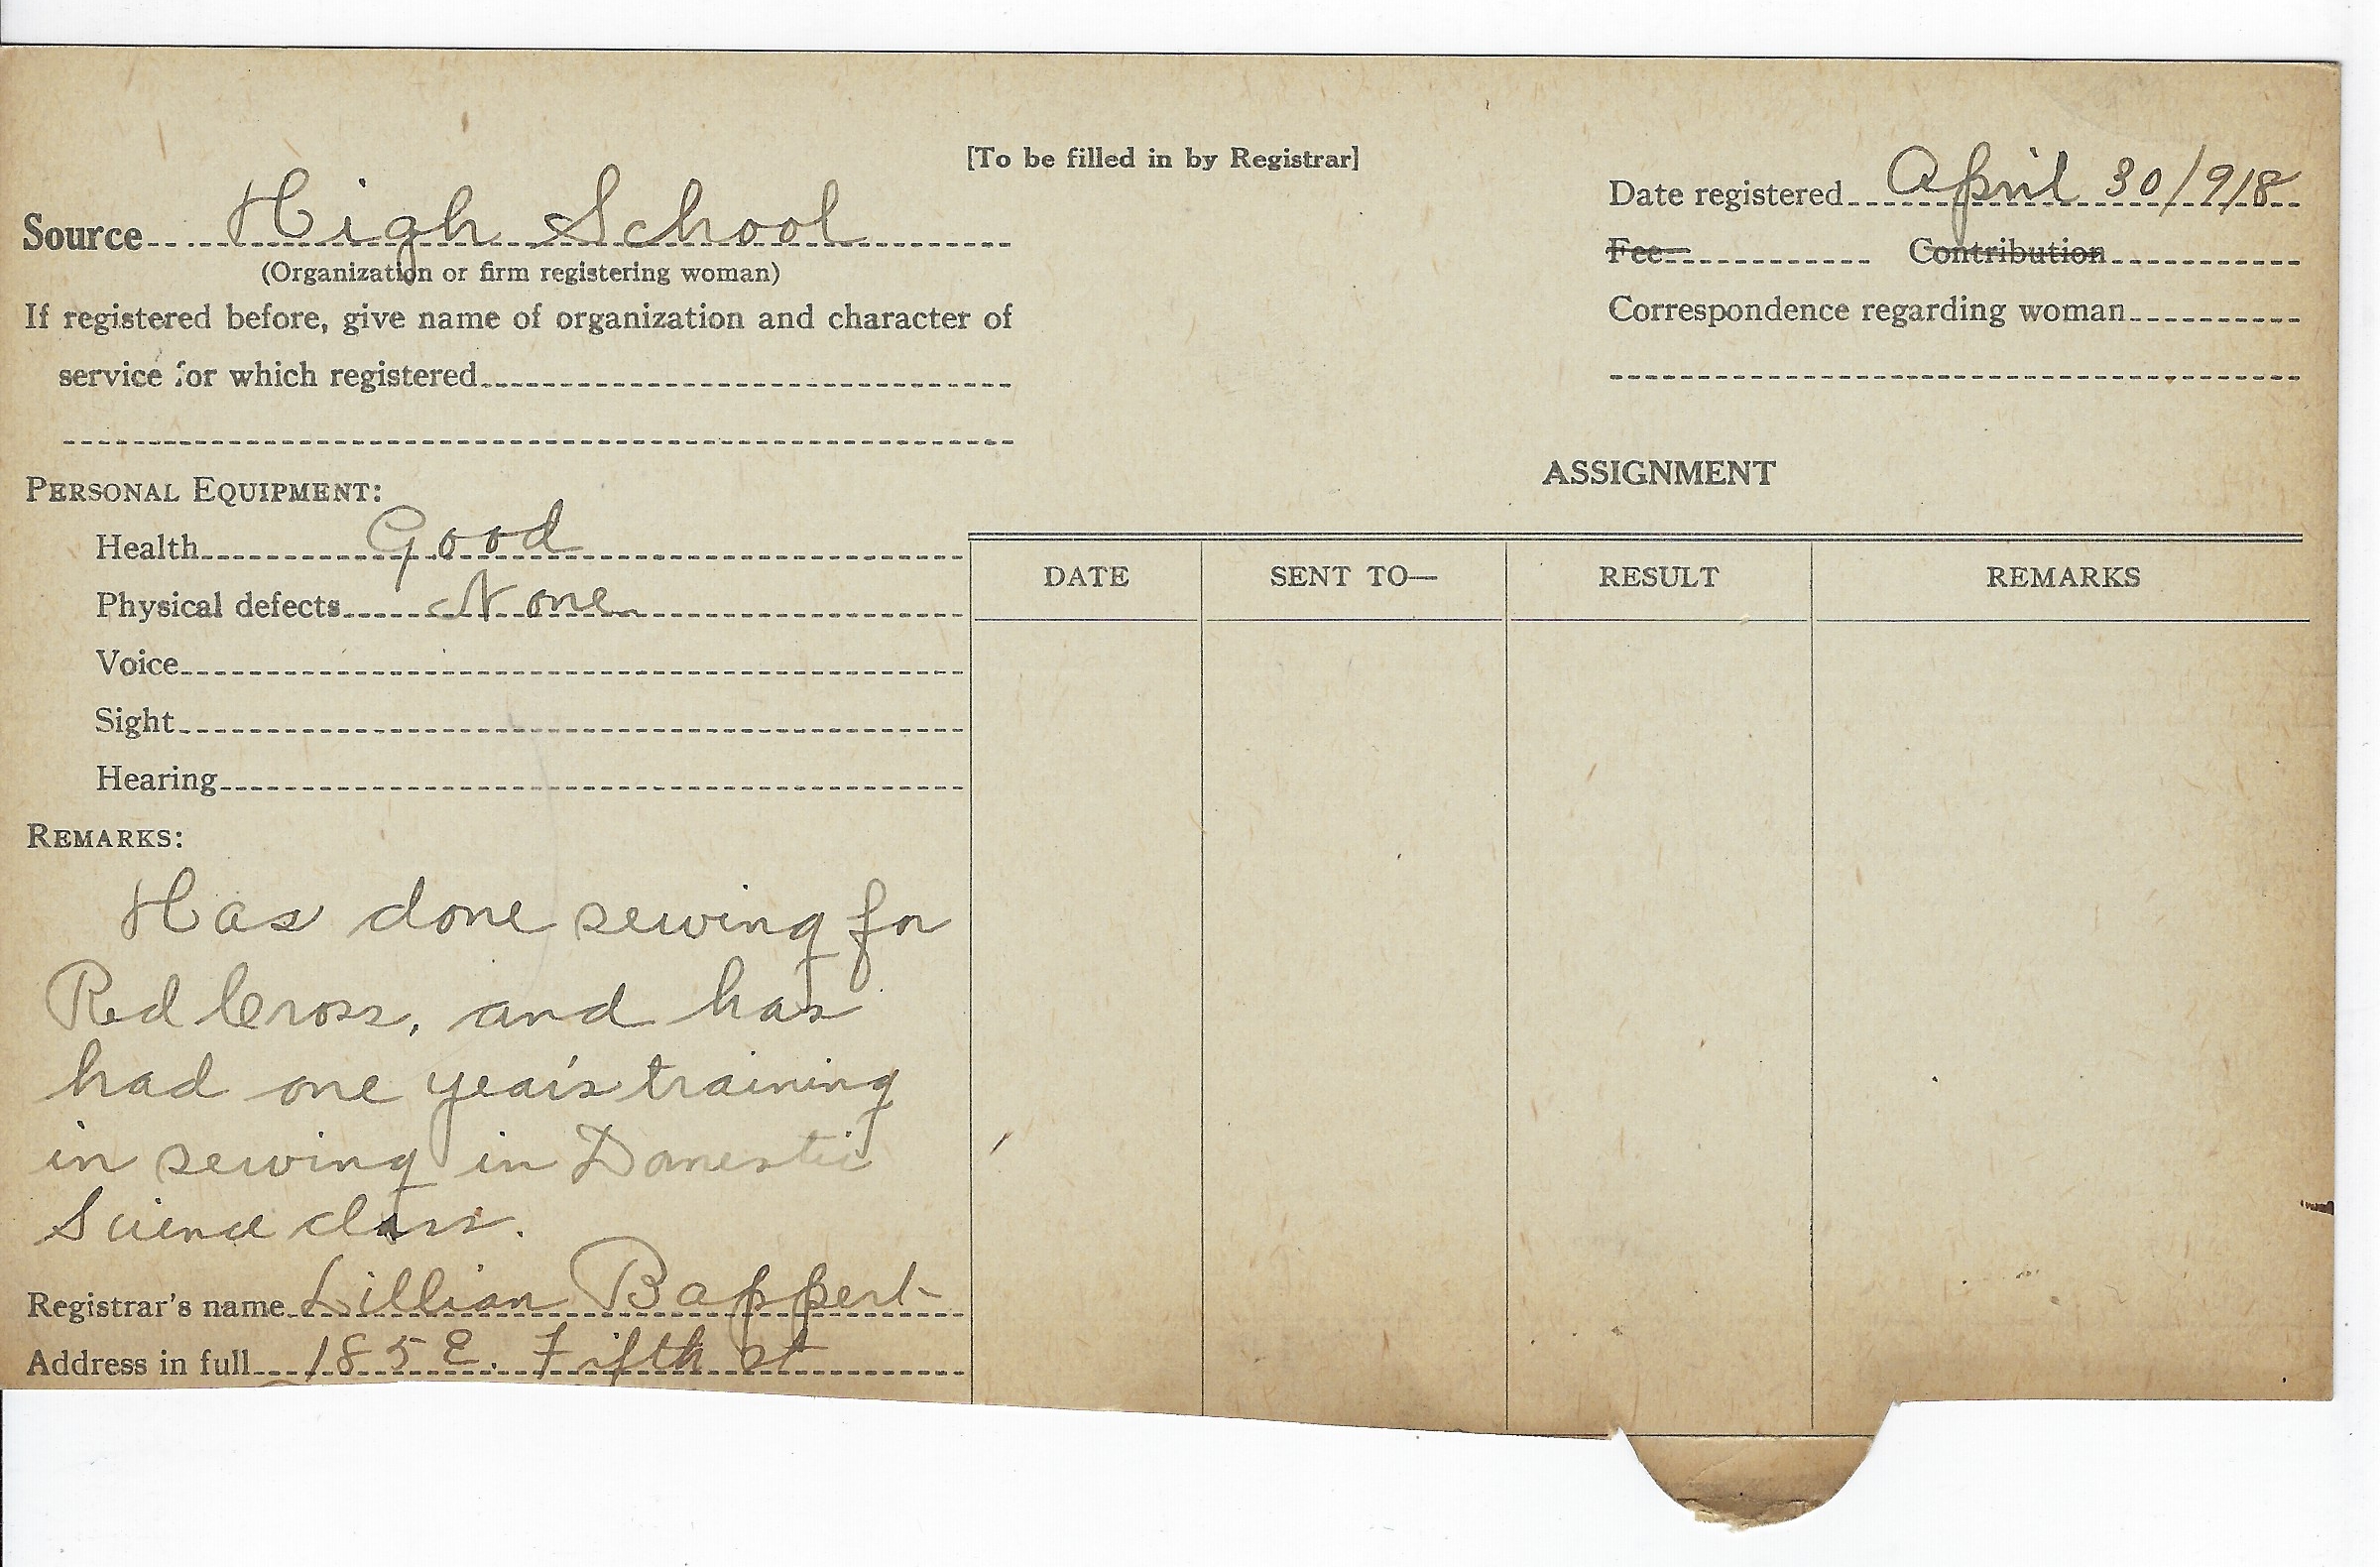 [To be filled in by Registrar]
Source High School
(Organization or firm registering woman)
If registered before, give name of organization and character of
service for which registered
Date registered April 30/918
Fee Contribution
Correspondence regarding woman
PERSONAL EQUIPMENT:
Health Good
Physical defects None
Voice
Sight
Hearing
REMARKS:
Has done sewing for
Red Cross, and has
had one year's training
in sewing in Domestic
Science class.
Registrar's name Lillian Bappert
Address in full 185 E. Fifth st
ASSIGNMENT
DATE SENT TO— RESULT REMARKS